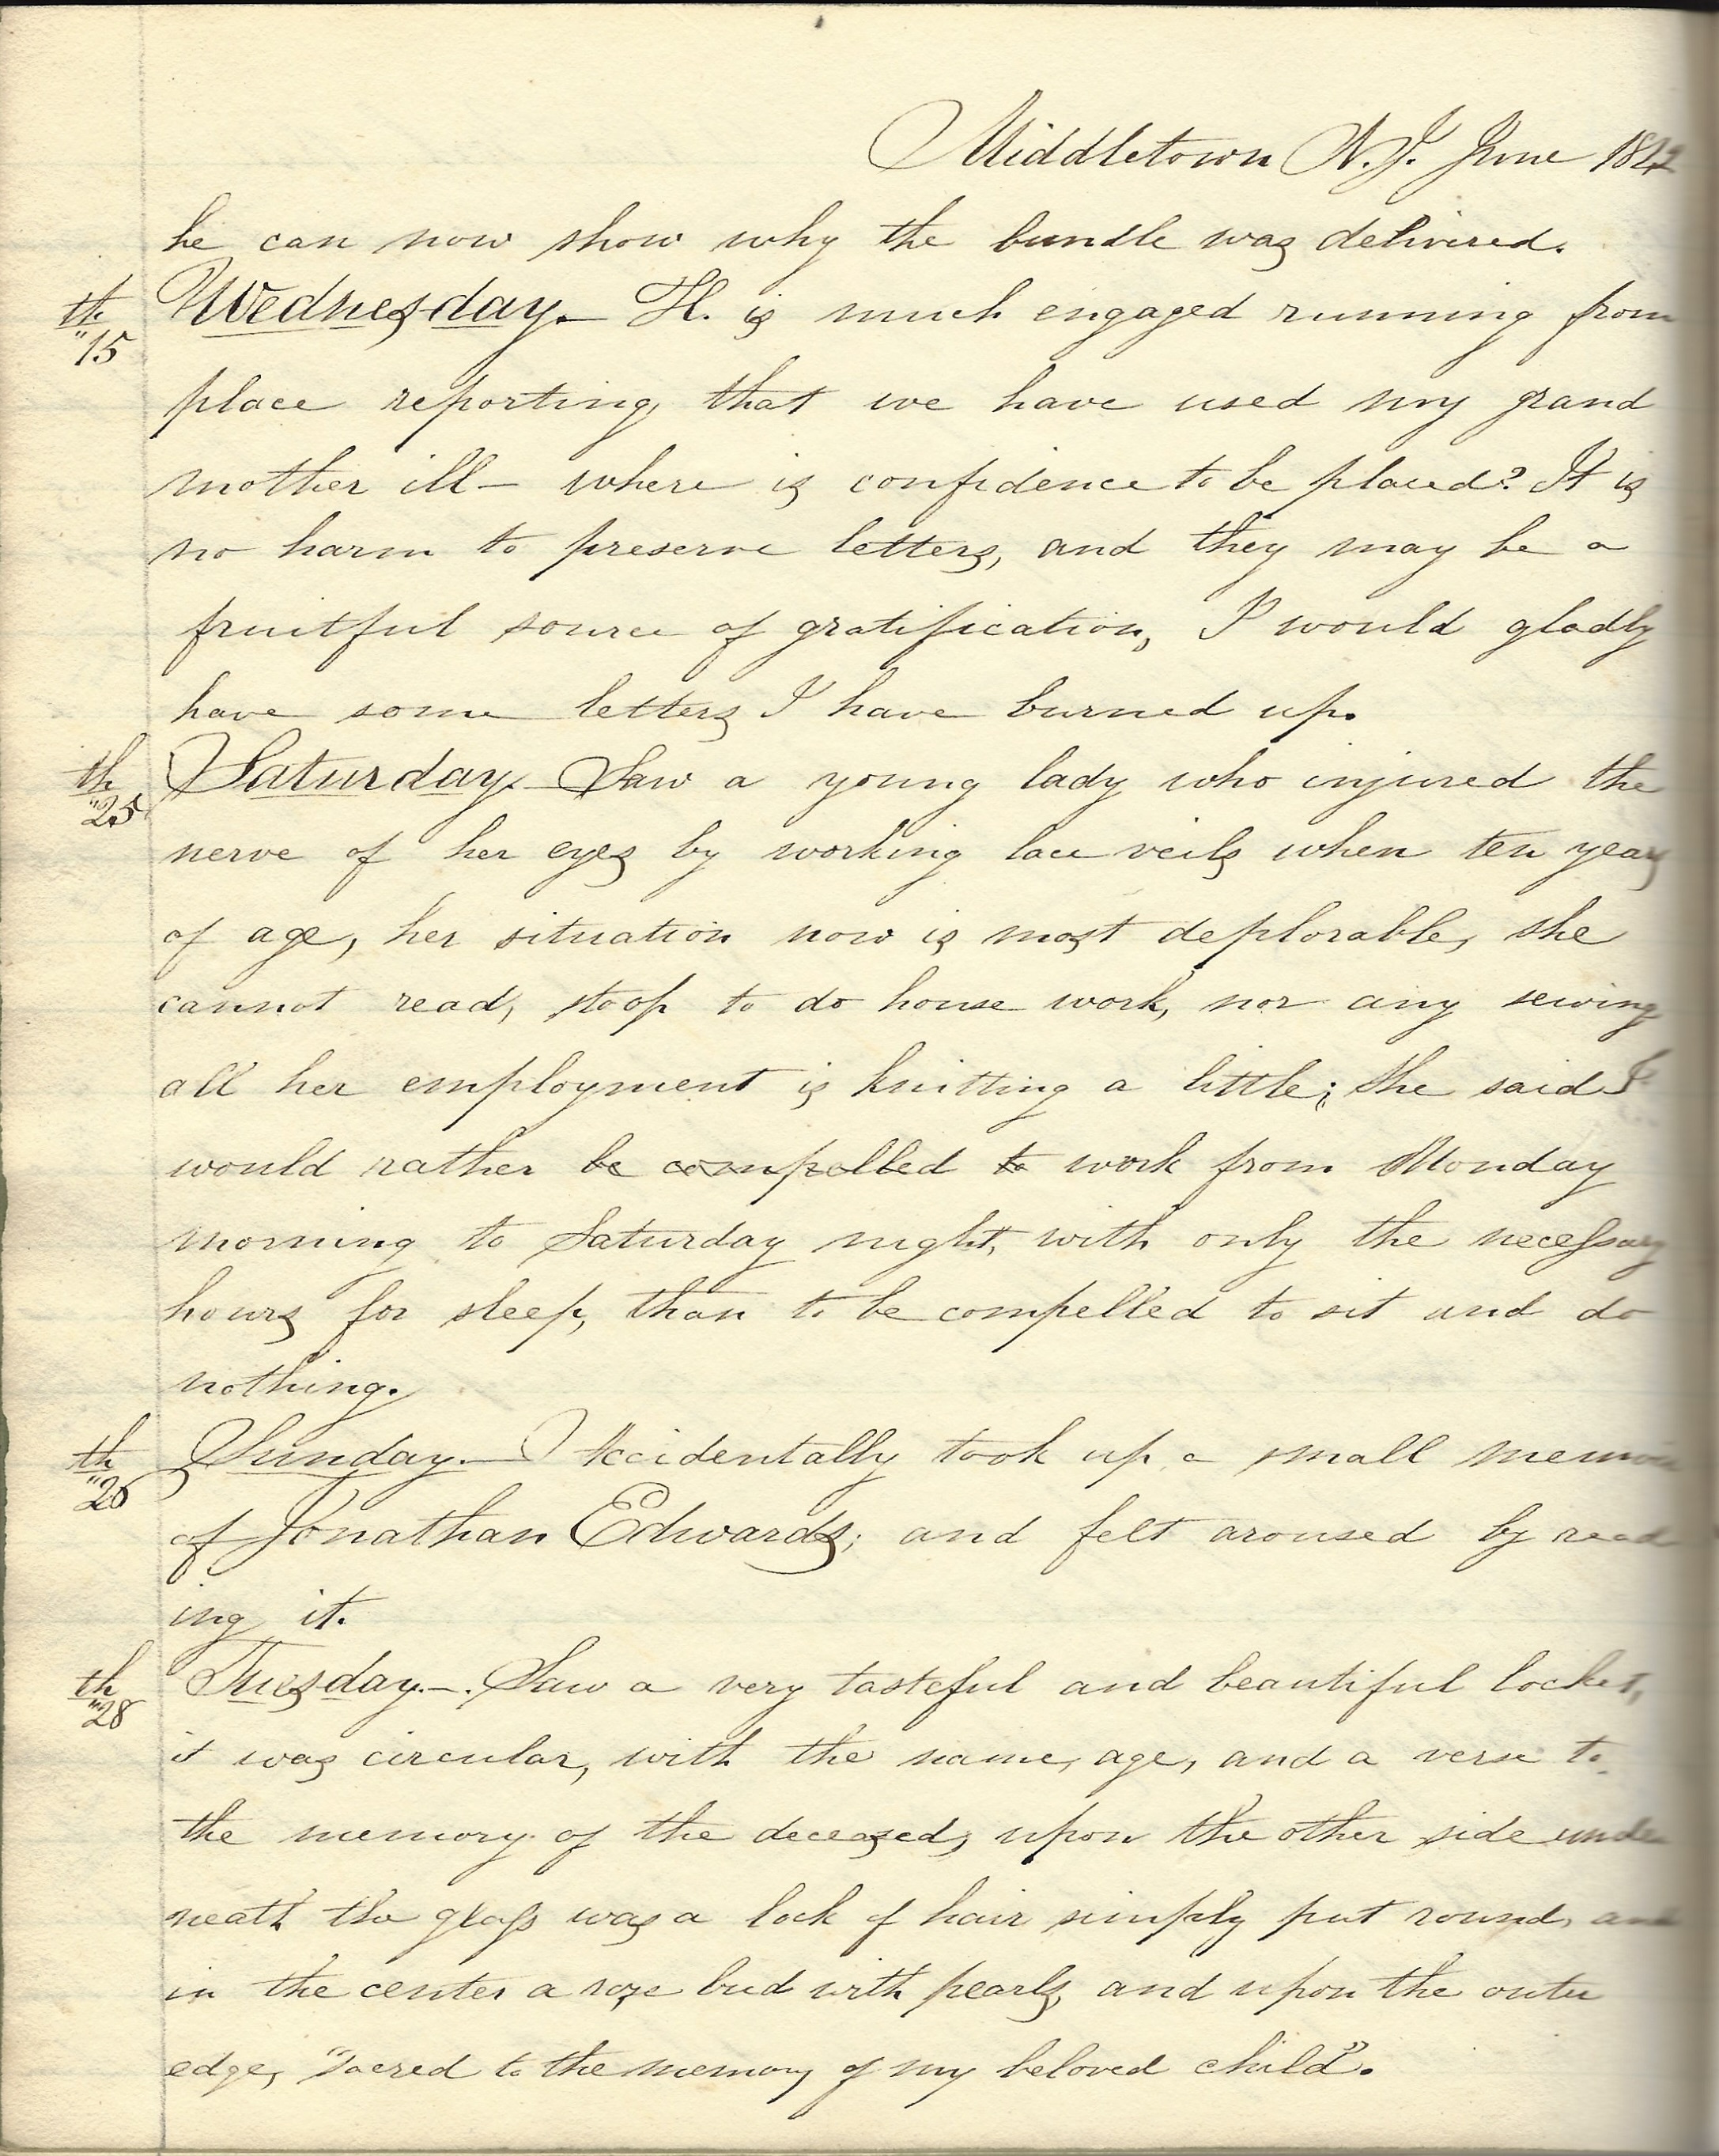 Middletown N.J. June 1842
he can now show why the bundle was delivered.
th "15 Wednesday.— H. is much engaged running from
place reporting, that we have used my grand
mother ill— where is confidence to be placed? It is
no harm to preserve letters, and they may be a
fruitful source of gratification, I would gladly
have some letters I have burned up.
th "25 Saturday.— Saw a young lady who injured the
nerve of her eyes by working lace veils when ten years
of age, her situation now is most deplorable, she
cannot read, stoop to do house work, nor any sewing
all her employment is knitting a little; she said I
would rather be compelled to work from Monday
morning to Saturday night, with only the necessary
hours for sleep, than to be compelled to sit and do
nothing.
th "26 Sunday.— Accidentally took up a small memoir
of Jonathan Edwards; and felt aroused by read
ing it.
th "28 Tuesday.—. Saw a very tasteful and beautiful locket,
it was circular, with the name, age, and a verse to
the memory of the deceased, upon the other side under
neath the glass was a lock of hair simply put round, and
in the center a rose bud with pearls, and upon the outer
edge, "sacred to the memory of my beloved child".